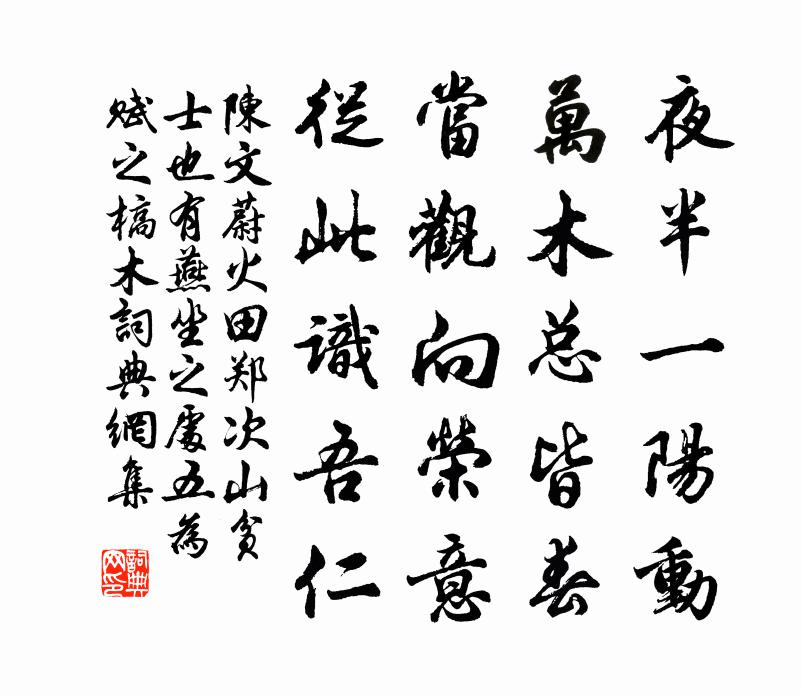 夜半一陽動
萬木总皆春
當觀向榮意
從此識吾仁
陳文蔚火田郑次山貧
士也有燕坐之處五為
赋之槁木詞典網集
詞典网印